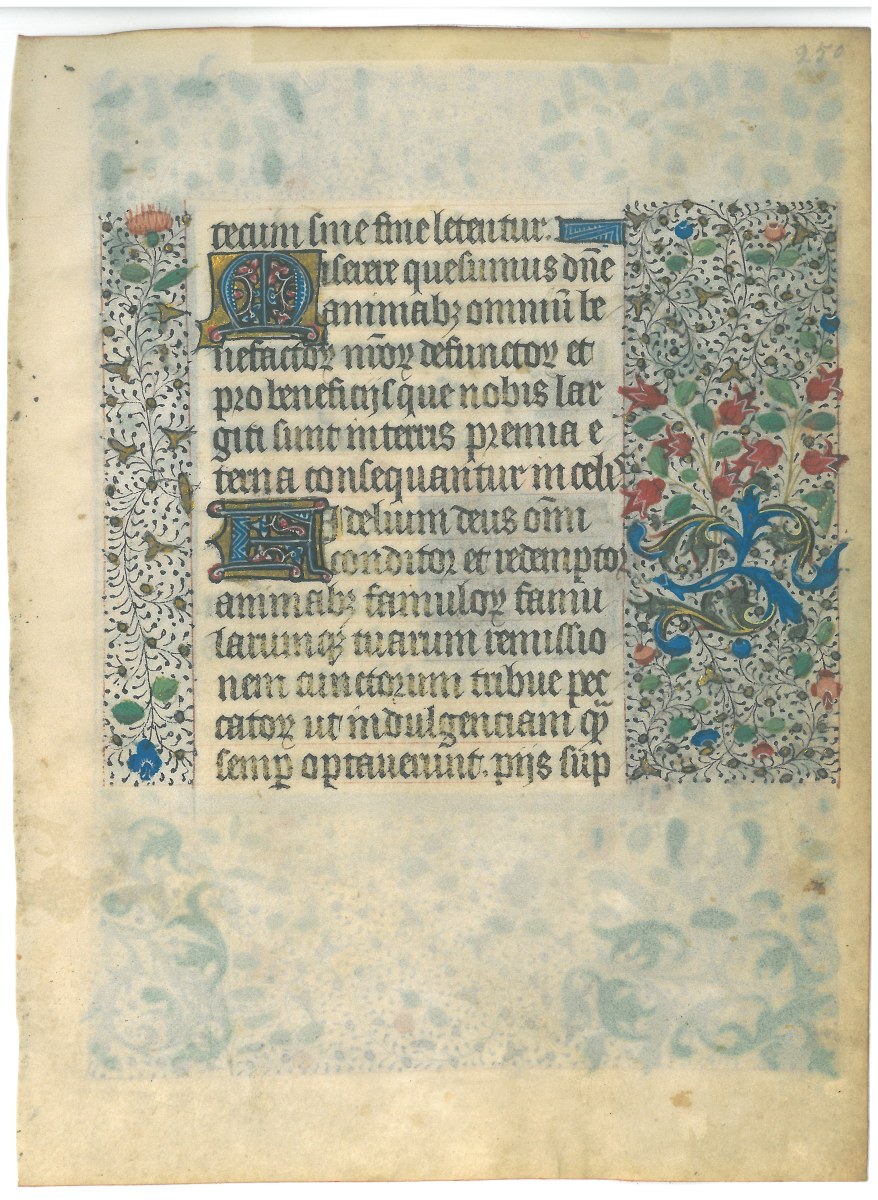 250
tecum sine fine letentur.
Miserere quesumus dn̄e
animabꝫ omniū be
nefactoꝝ nr̄oꝝ defunctoꝝ et
pro beneficijs que nobis lar
giti sunt in terris premia e
terna consequantur in celis
Fidelium deus om̄i
conditor et redemptor
animabꝫ famuloꝝ famu
larumqꝫ tuarum remissio
nem cunctorum tribue pec
catoꝝ ut indulgentiam qꝫ̄
semꝑ optauerunt. pijs sup